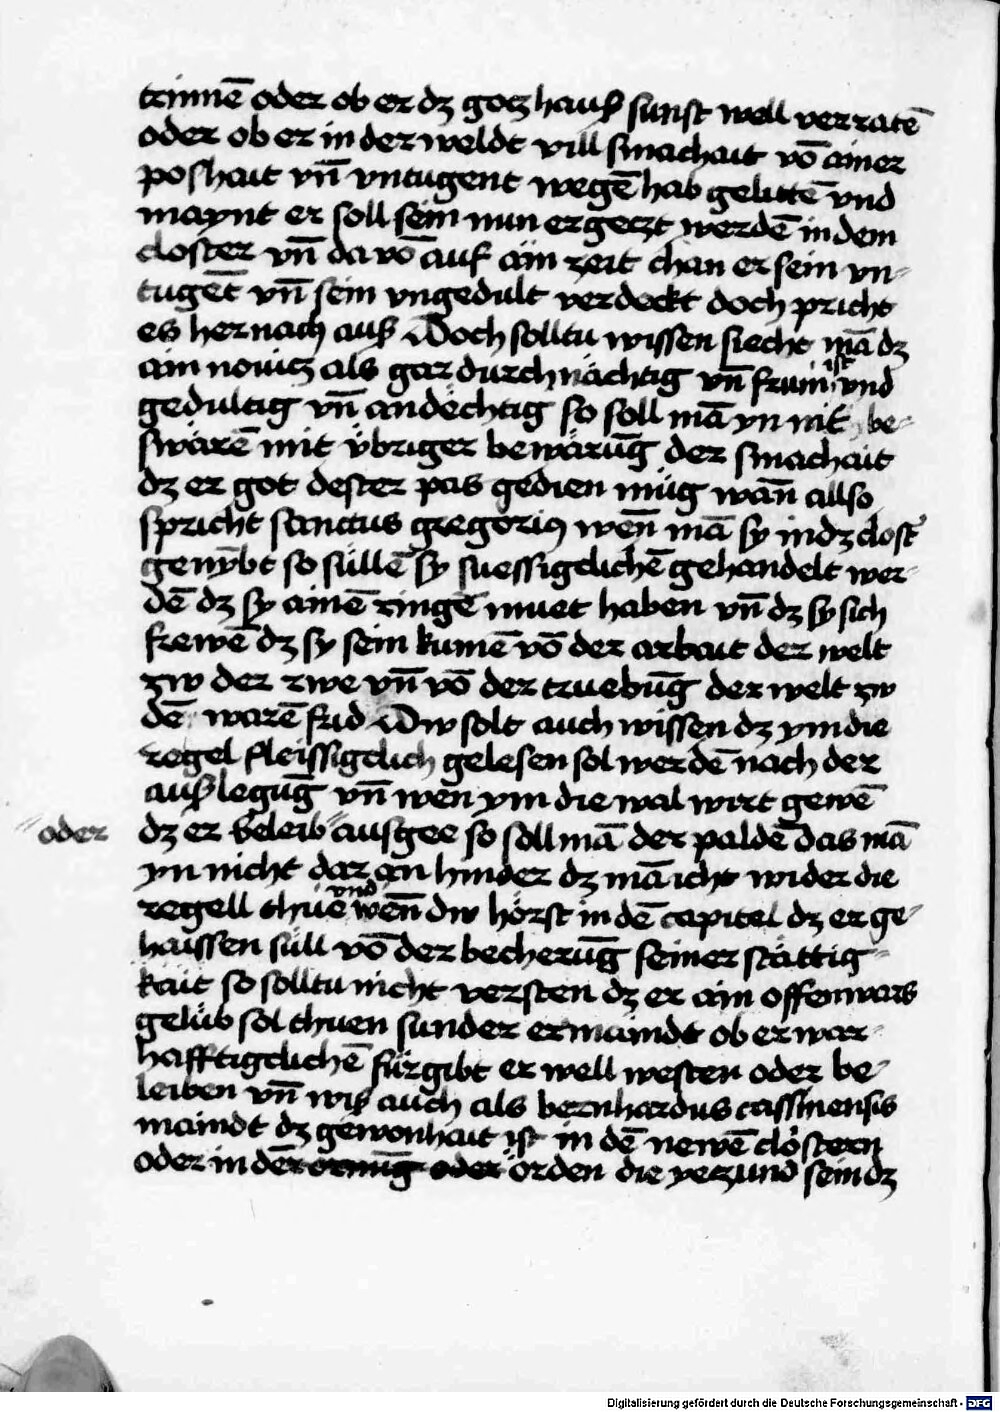 trinnē oder ob er dz gotzhauß sunst well verratē
oder ob er in der weldt vill smachait vō ainer
poshait vn̄ vntugent wegē hab gelittē vnd
maynt er soll sein nun ergetzt werdē in dem
closter vn̄ da vō auf ain zeit chan er sein vn-
tugēt vn̄ sein vngedult verdeckt doch pricht
es hernach auß Doch solltu wissen siecht mā dz
ain nouitz als gar durchnächtig ist vn̄ frum vnd
gedultig vn̄ andëchtig so soll mā yn nit be-
swärē mit übriger bewärūg der smachait
dz er got dester pas gedien müg wan̄ allso
spricht sanctus gregorius wen̄ mā sy in dz clost'
genybt so süllē sy suessigclichē gehandelt wer-
dē dz sy ainē ringē muet haben vn̄ dz sy sich
frewē dz sy sein kumē vō der arbait der welt
zw der rwe vn̄ vō der truebūg der welt zw
dē warē frid Dw solt auch wissen dz ym die
regel fleissigclich gelesen sol werdē nach der
auslegūg vn̄ wen ym die wal wirt gewē
dz er beleib oder ausgee so soll mā der paldē das mā
yn nicht dar an hinder dz mā icht wider die
regell thue vnd wen̄ dw hörst in dē capitel dz er ge-
haissen süll vō der becherūg seiner stättig-
kait so solltu nicht versten dz er ain offenwars
gelüb sol thuen sunder er maindt ob er war-
hafftigclichē fürgibt er well westen oder be-
leiben vn̄ wiß auch als bernhardus cassinensis
maindt dz gewonhait ist in dē newē clöstern
oder in dē orden die yetzund sein dz